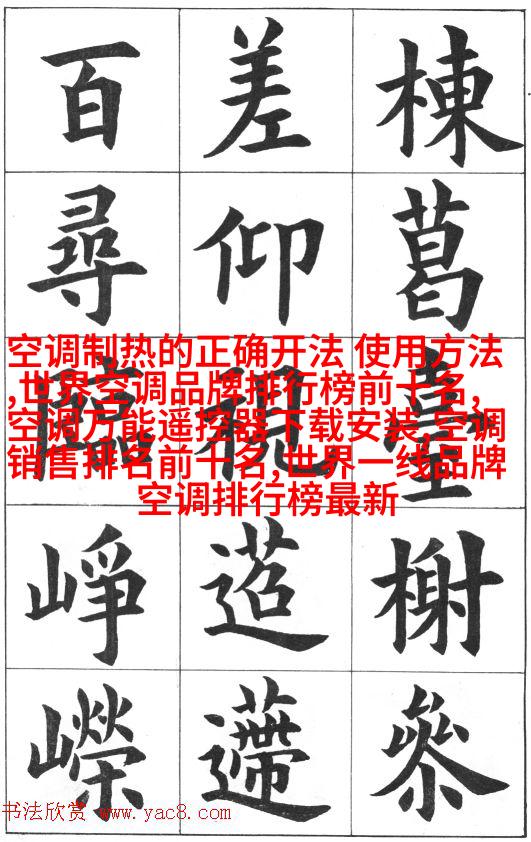 棟葛臺榭參
差仰視
百尋臨崢嶸
空调制热的正确开法 使用方法
,世界空调品牌排行榜前十名,
空调万能遥控器下载安装 空调
销售排名前十名,世界一线品牌
空调排行榜最新
书法欣赏 www.yac8.com